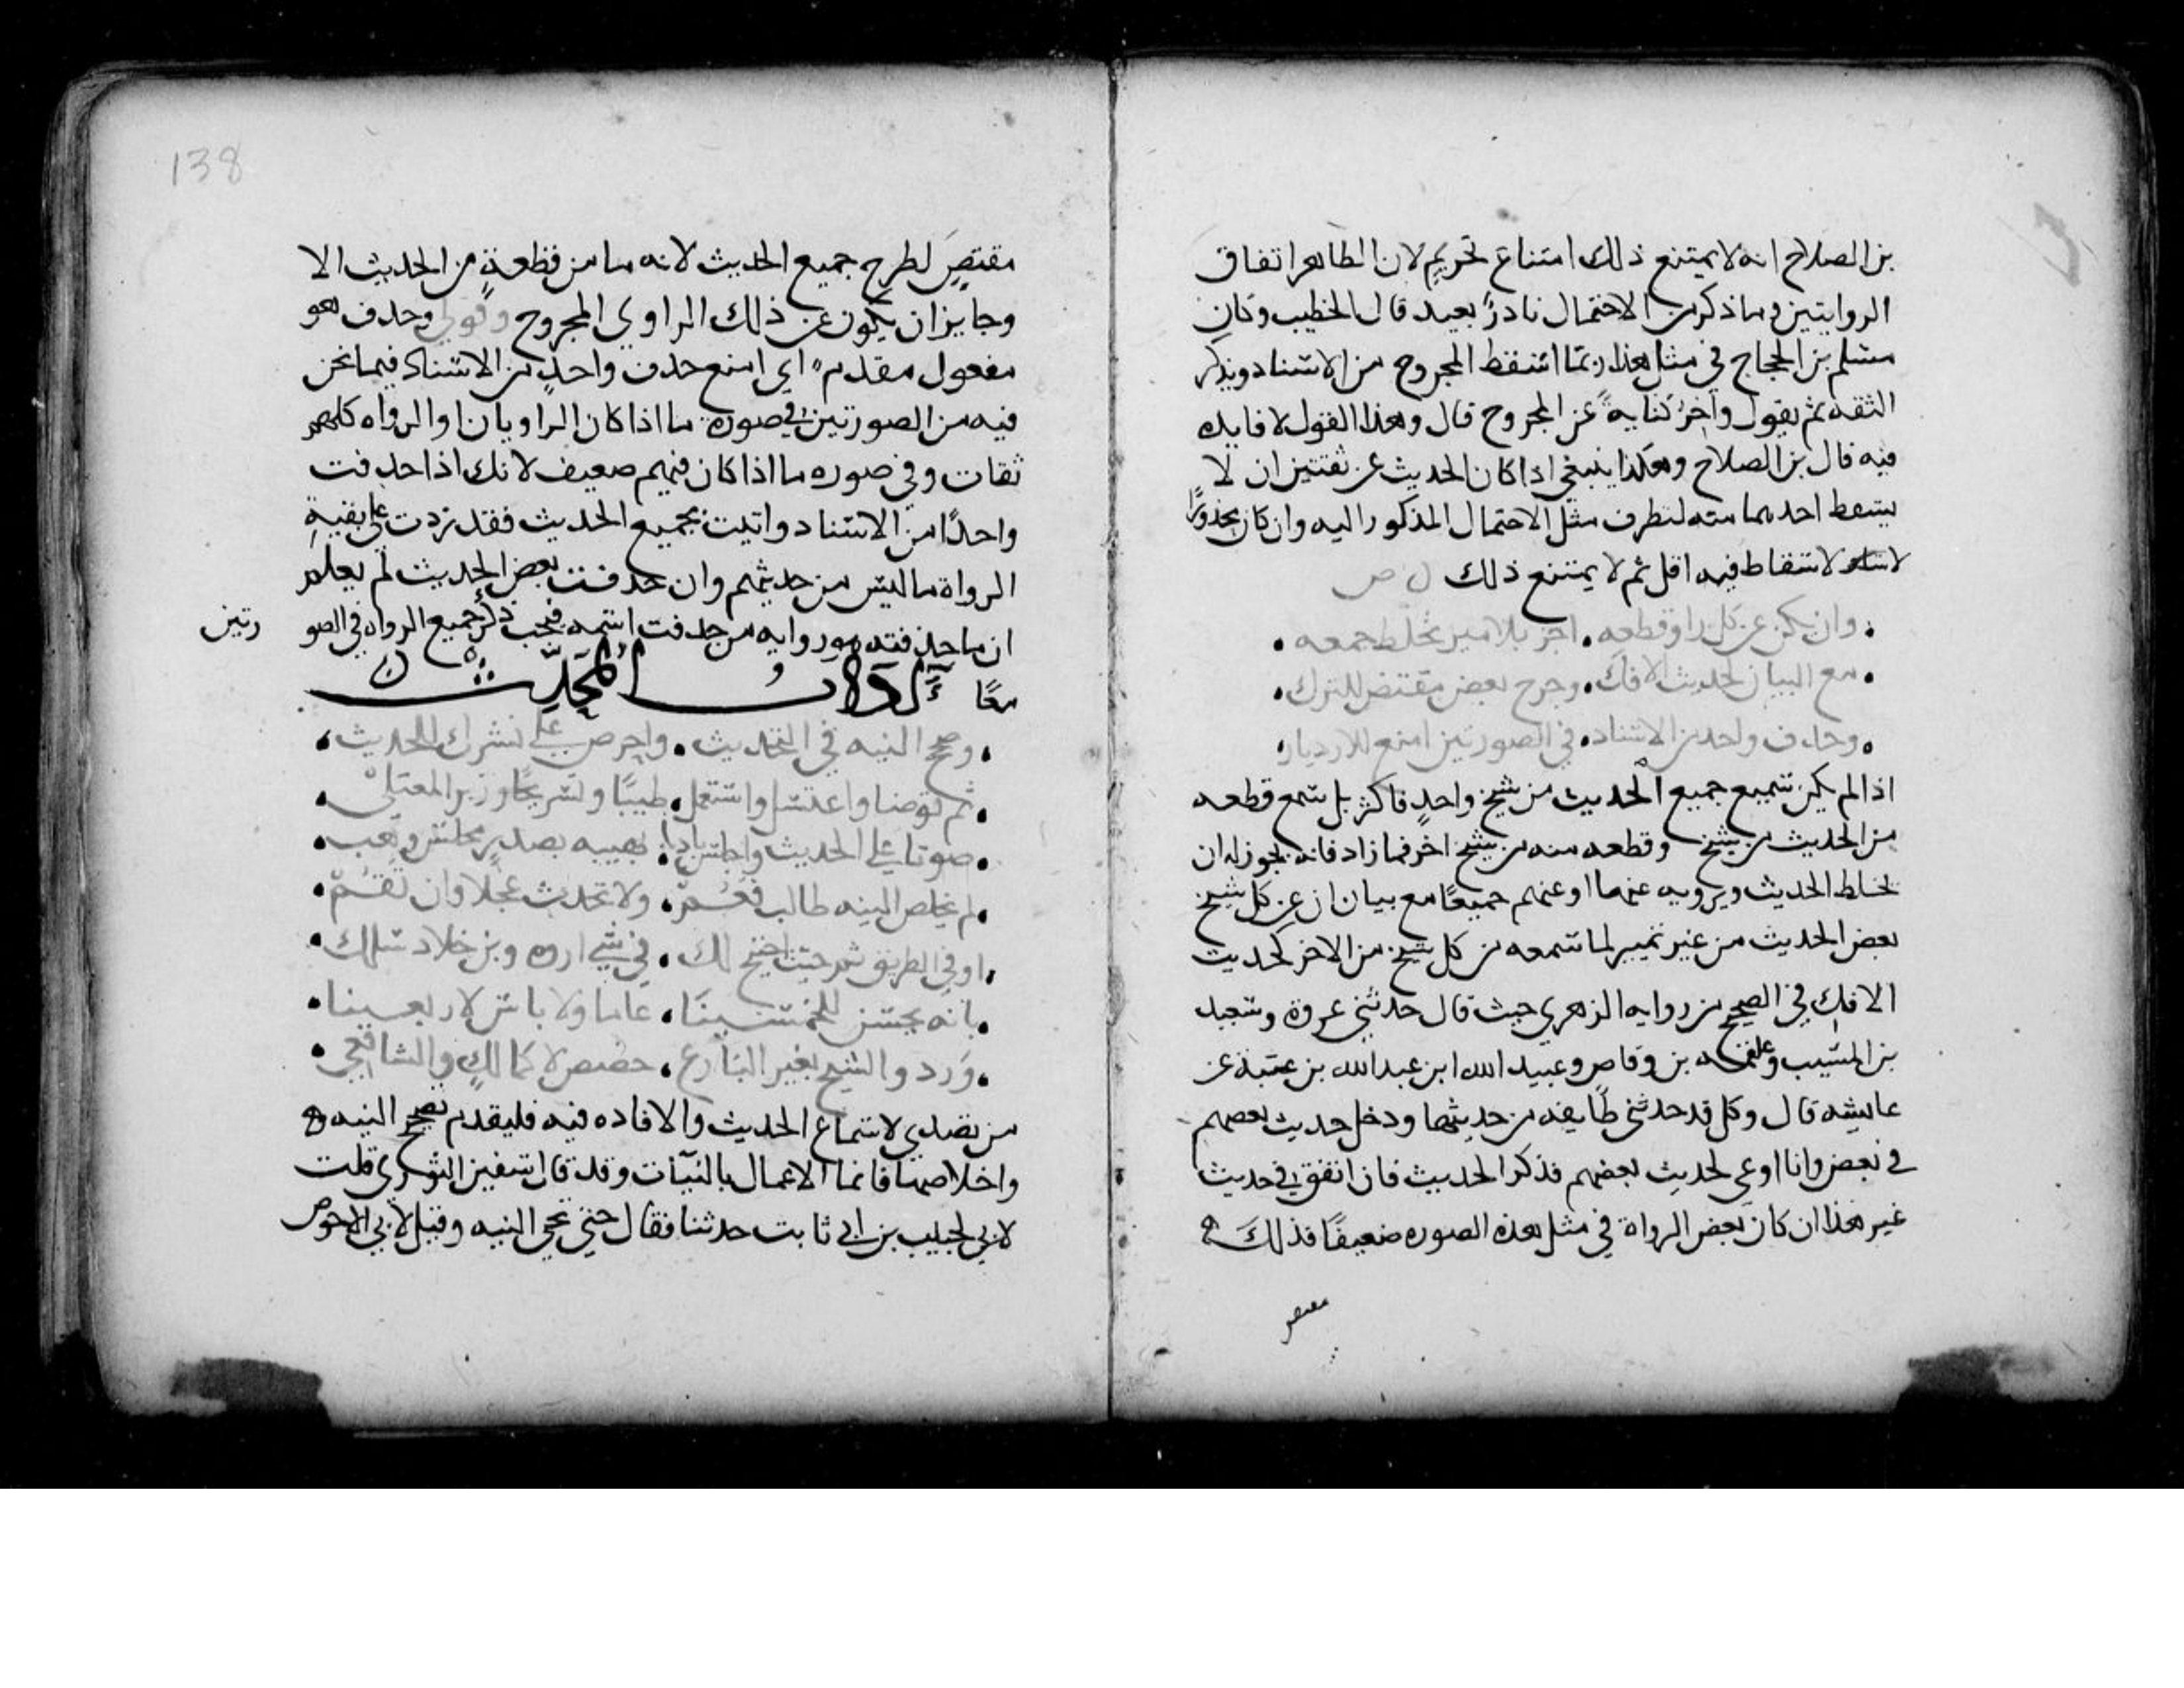 بن الصلاح انه لا يمتنع ذلك امتناع تحريم لان الظاهر اتفاق
الروايتين وما ذكر من الاحتمال نادرٌ بعيد قال الخطيب وكان
مسلم بن الحجاج في مثل هذا ربما اسقط المجروح من الاسناد ويذكر
الثقه ثم يقول وآخر كنايةً عن المجروح قال وهذا القول لا فايده
فيه قال بن الصلاح وهكذا ينبغي اذا كان الحديث عن ثقتين ان لا
يسقط احدهما منه لتطرق مثل الاحتمال المذكور اليه وان كان محذورًا
لاسقاط فيه اقل ثم لا يمتنع ذلك ص
وان يكن عن كل راو قطعه • اجز بلا ميز بخلط جمعه •
• مع البيان كحديث الافك • وجرح بعض مقتض للترك •
• وحذف واحد من الاسناد • في الصورتين امنع للازدياد
اذا لم يكن سمع جميع الحديث من شيخ واحدٍ فاكثر بل سمع قطعه
من الحديث من شيخ وقطعه منه من شيخ اخر فما زاد فانه يجوز له ان
يخلط الحديث ويرويه عنهما او عنهم جميعًا مع بيان ان عن كل شيخ
بعض الحديث من غير تمييز لما سمعه من كل شيخ من الاخر كحديث
الافك في الصحيح من روايه الزهري حيث قال حدثني عروة وسعيد
بن المسيب وعلقمه بن وقاص وعبيد الله ابن عبد الله بن عتبة عن
عايشه قال وكل قد حدثني طايفه من حديثها ودخل حديث بعضهم
في بعض وانا اوعى لحديث بعضهم فذكر الحديث فان اتفق في حديث
غير هذا ان كان بعض الرواة في مثل هذه الصوره ضعيفًا فذلك
مقتض
138
مقتضٍ لطرح جميع الحديث لانه ما من قطعةٍ من الحديث الا
وجايز ان يكون عن ذلك الراوي المجروح وقولي وحذف هو
مفعول مقدم اي امنع حذف واحدٍ من الاسناد فيما نحن
فيه من الصورتين في صورة ما اذا كان الراويان او الرواه كلهم
ثقات وفي صوره ما اذا كان فيهم ضعيف لانك اذا حذفت
واحدًا من الاسناد واتيت بجميع الحديث فقد زدت على بقيةِ
الرواة ما ليس من حديثهم وان حذفت بعض الحديث لم يعلم
ان ما حذفته هو روايه من حذفت اسمه فيجب ذكر جميع الرواه في الصو رتين
معًا آدابُ المُحَدِّث
• وصحح النيه في التحديث • واحرص على نشرك للحديث •
• ثم توضا واغتسل واستعمل • طيبًا وتسريحًا وزبر المعتلي •
• صوتا على الحديث واجلس بادب • وهيبه بصدر مجلس وهب •
• لم يخلص النيه طالب فعُمّ • ولا تحدث عجلا وان تقُمْ •
• او في الطريق ثم حيث احتيج لك • في شي اروه وبن خلاد سلك •
• بانه يحسن للخمسينَا • عاما ولا باس لاربعينا •
• ورد والشيخ بغير البارع • خصص لا كمالكٍ والشافعي •
من تصدى لاسماع الحديث والافاده فيه فليقدم تصحيح النيه
واخلاصها فانما الاعمال بالنيّات وقد قال سفين الثوري قلت
لابي لحبيب بن ابي ثابت حدثنا فقال حتى تجي النيه وقيل لابي الاحوص